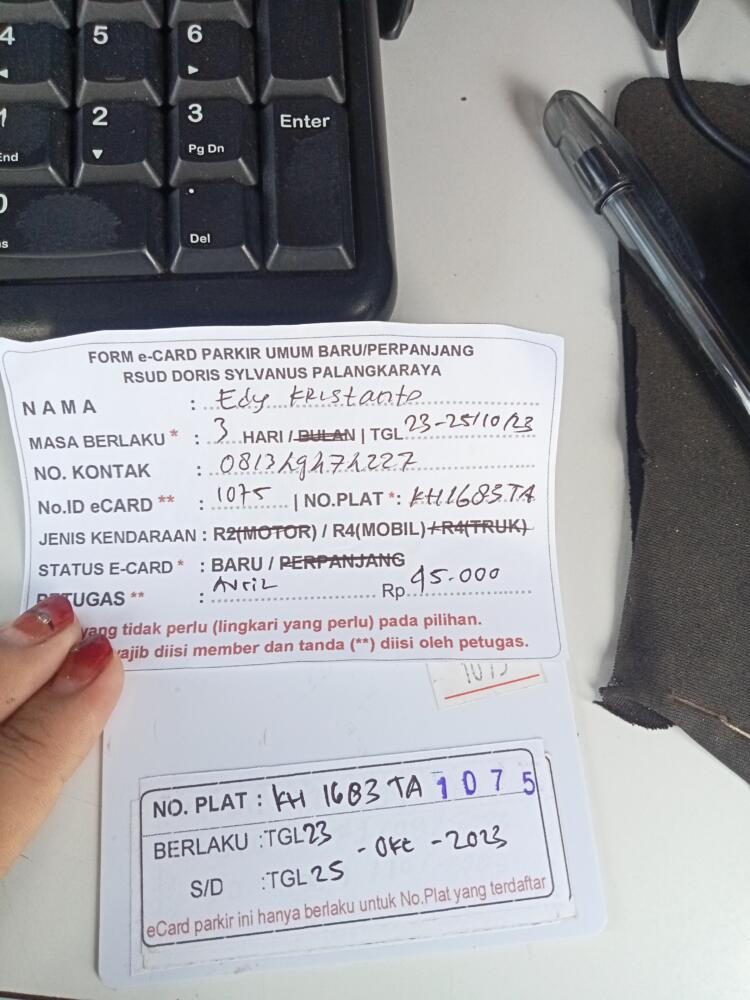 4 5 6
1 2 3 Enter
End Pg Dn
0 .
Del
FORM e-CARD PARKIR UMUM BARU/PERPANJANG
RSUD DORIS SYLVANUS PALANGKARAYA
NAMA : Edy Kristanto
MASA BERLAKU * : 3 HARI / BULAN | TGL 23-25/10/23
NO. KONTAK : 0813
No.ID eCARD ** : 1075 | NO.PLAT *: KH1683TA
JENIS KENDARAAN : R2(MOTOR) / R4(MOBIL) / R4(TRUK)
STATUS E-CARD * : BARU / PERPANJANG
PETUGAS ** : Avril Rp 45.000
yang tidak perlu (lingkari yang perlu) pada pilihan.
wajib diisi member dan tanda (**) diisi oleh petugas.
1075
NO. PLAT : KH 1683 TA 1075
BERLAKU :TGL 23 - Okt - 2023
S/D :TGL 25
eCard parkir ini hanya berlaku untuk No.Plat yang terdaftar